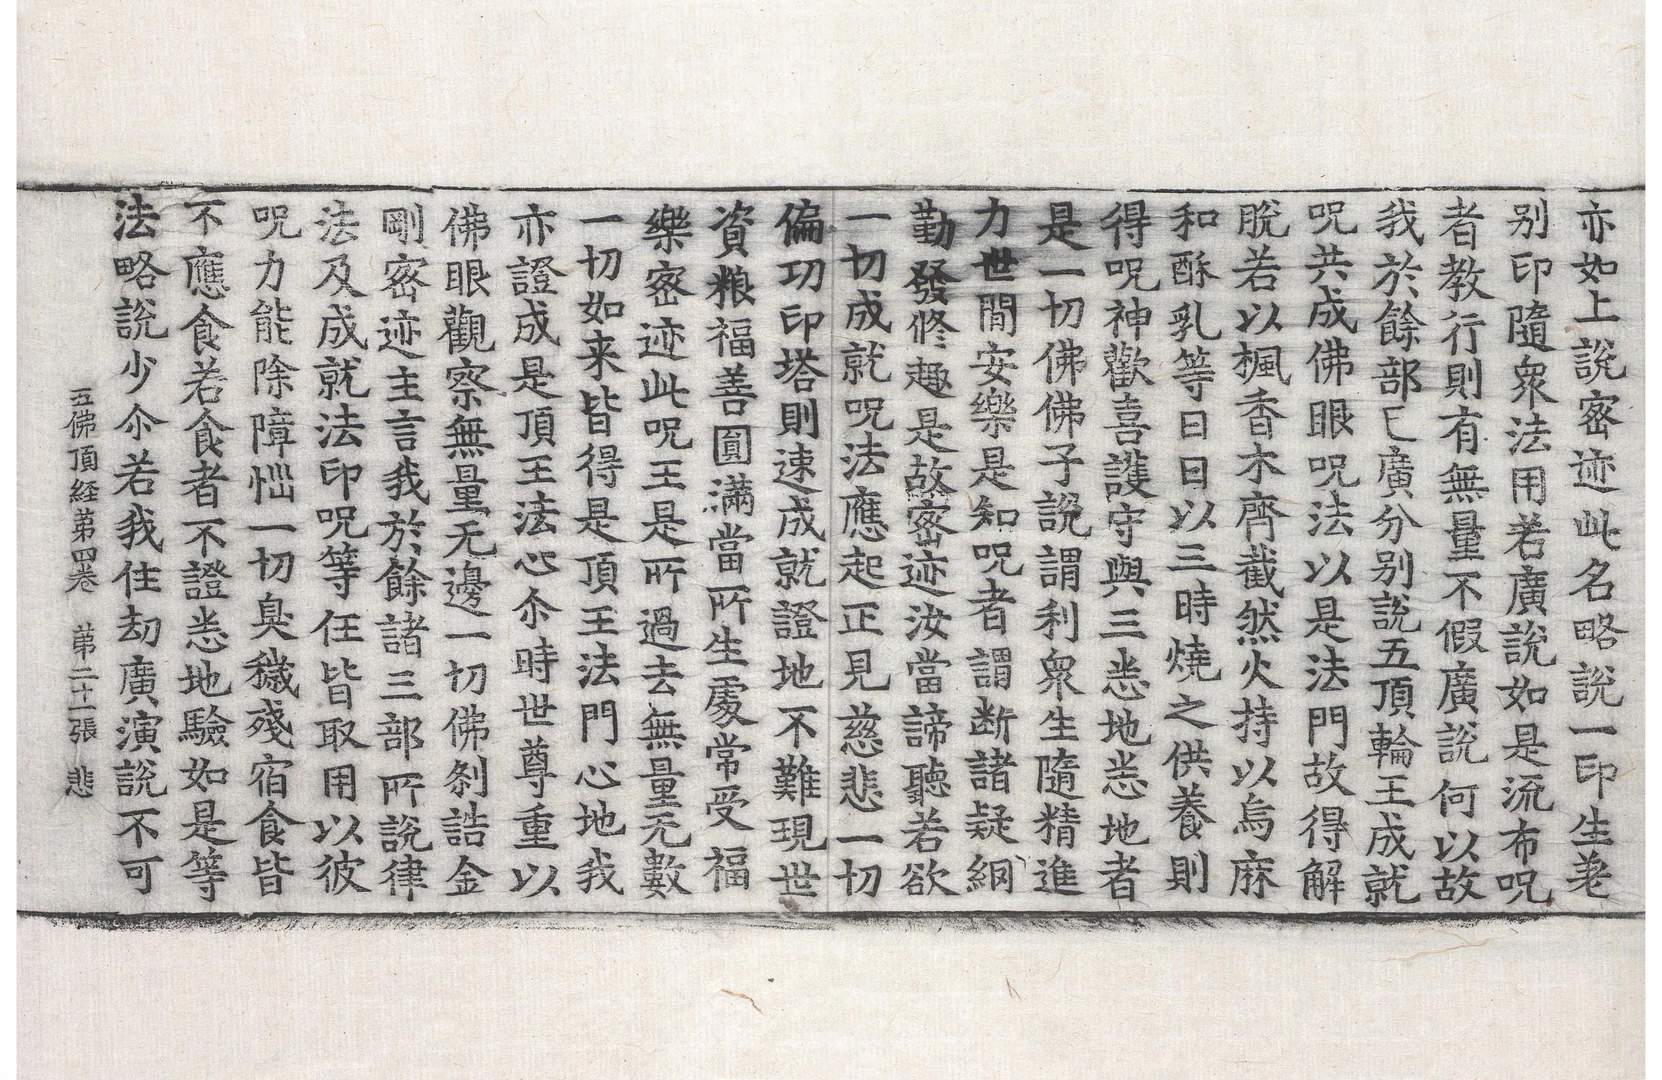 亦如上說密迹此名略說一印生差
别印隨衆法用若廣說如是流布呪
者教行則有無量不假廣說何以故
我於餘部已廣分别說五頂輪王成就
呪共成佛眼呪法以是法門故得解
脫若以楓香木齊截然火持以烏麻
和酥乳等日日以三時燒之供養則
得呪神歡喜護守與三悉地悉地者
是一切佛佛子說謂利衆生隨精進
力世間安樂是知呪者謂断諸疑網
勤發修趣是故密迹汝當諦聽若欲
一切成就呪法應起正見慈悲一切
偏功印塔則速成就證地不難現世
資粮福善圓滿當所生處常受福
樂密迹此呪王是所過去無量无數
一切如来皆得是頂王法門心地我
亦證成是頂王法心尒時世尊重以
佛眼觀察無量无邊一切佛刹誥金
剛密迹主言我於餘諸三部所說律
法及成就法印呪等任皆取用以彼
呪力能除障惱一切臭穢殘宿食皆
不應食若食者不證悉地驗如是等
法略說少尒若我住劫廣演說不可
五佛頂経第四卷　第二十一張　悲